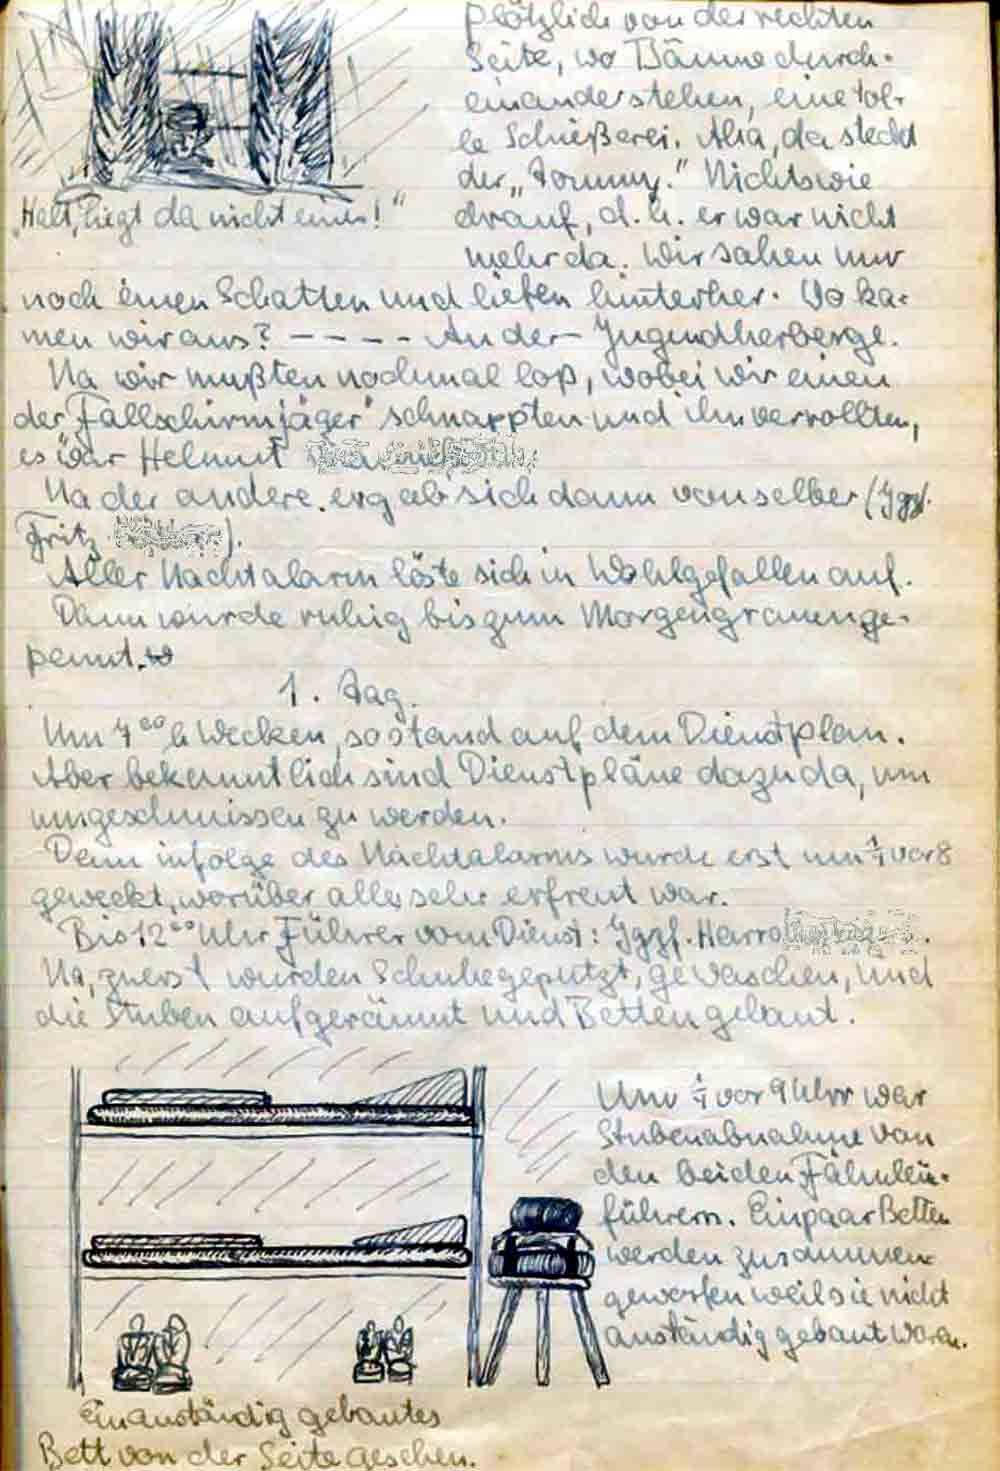 plötzlich von der rechten
Seite, wo Bäume durch-
einanderstehen, eine tol-
le Schießerei. Aha, da steckt
der „Tommy." Nichts wie
drauf, d. h. er war nicht
mehr da. Wir sahen nur
„Halt, liegt da nicht einer!"
noch einen Schatten und liefen hinterher. Wo ka-
men wir aus? - - - - - An der Jugendherberge.
Na wir mußten nochmal loß, wobei wir einen
der „Fallschirmjäger" schnappten und ihn verrollten,
es war Helmut
Na der andere ergab sich dann von selber (Jgzf.
Fritz ).
Aller Nachtalarm löste sich in Wohlgefallen auf.
Dann wurde ruhig bis zum Morgengrauen ge-
pennt.
1. Tag.
Um 7⁰⁰ h Wecken, so stand auf dem Dienstplan.
Aber bekanntlich sind Dienstpläne dazu da, um
umgeschmissen zu werden.
Denn infolge des Nachtalarms wurde erst um ¼ vor 8
geweckt, worüber alles sehr erfreut war.
Bis 12⁰⁰ Uhr Führer vom Dienst: Jgzf. Harro
Na, zuerst wurden Schuhe geputzt, gewaschen, und
die Stuben aufgeräumt und Betten gebaut.
Um ¼ vor 9 Uhr war
Stubenabnahme von
den beiden Fähnlein-
führern. Ein paar Betten
werden zusammen-
geworfen weil sie nicht
anständig gebaut waren.
Ein anständig gebautes
Bett von der Seite gesehen.